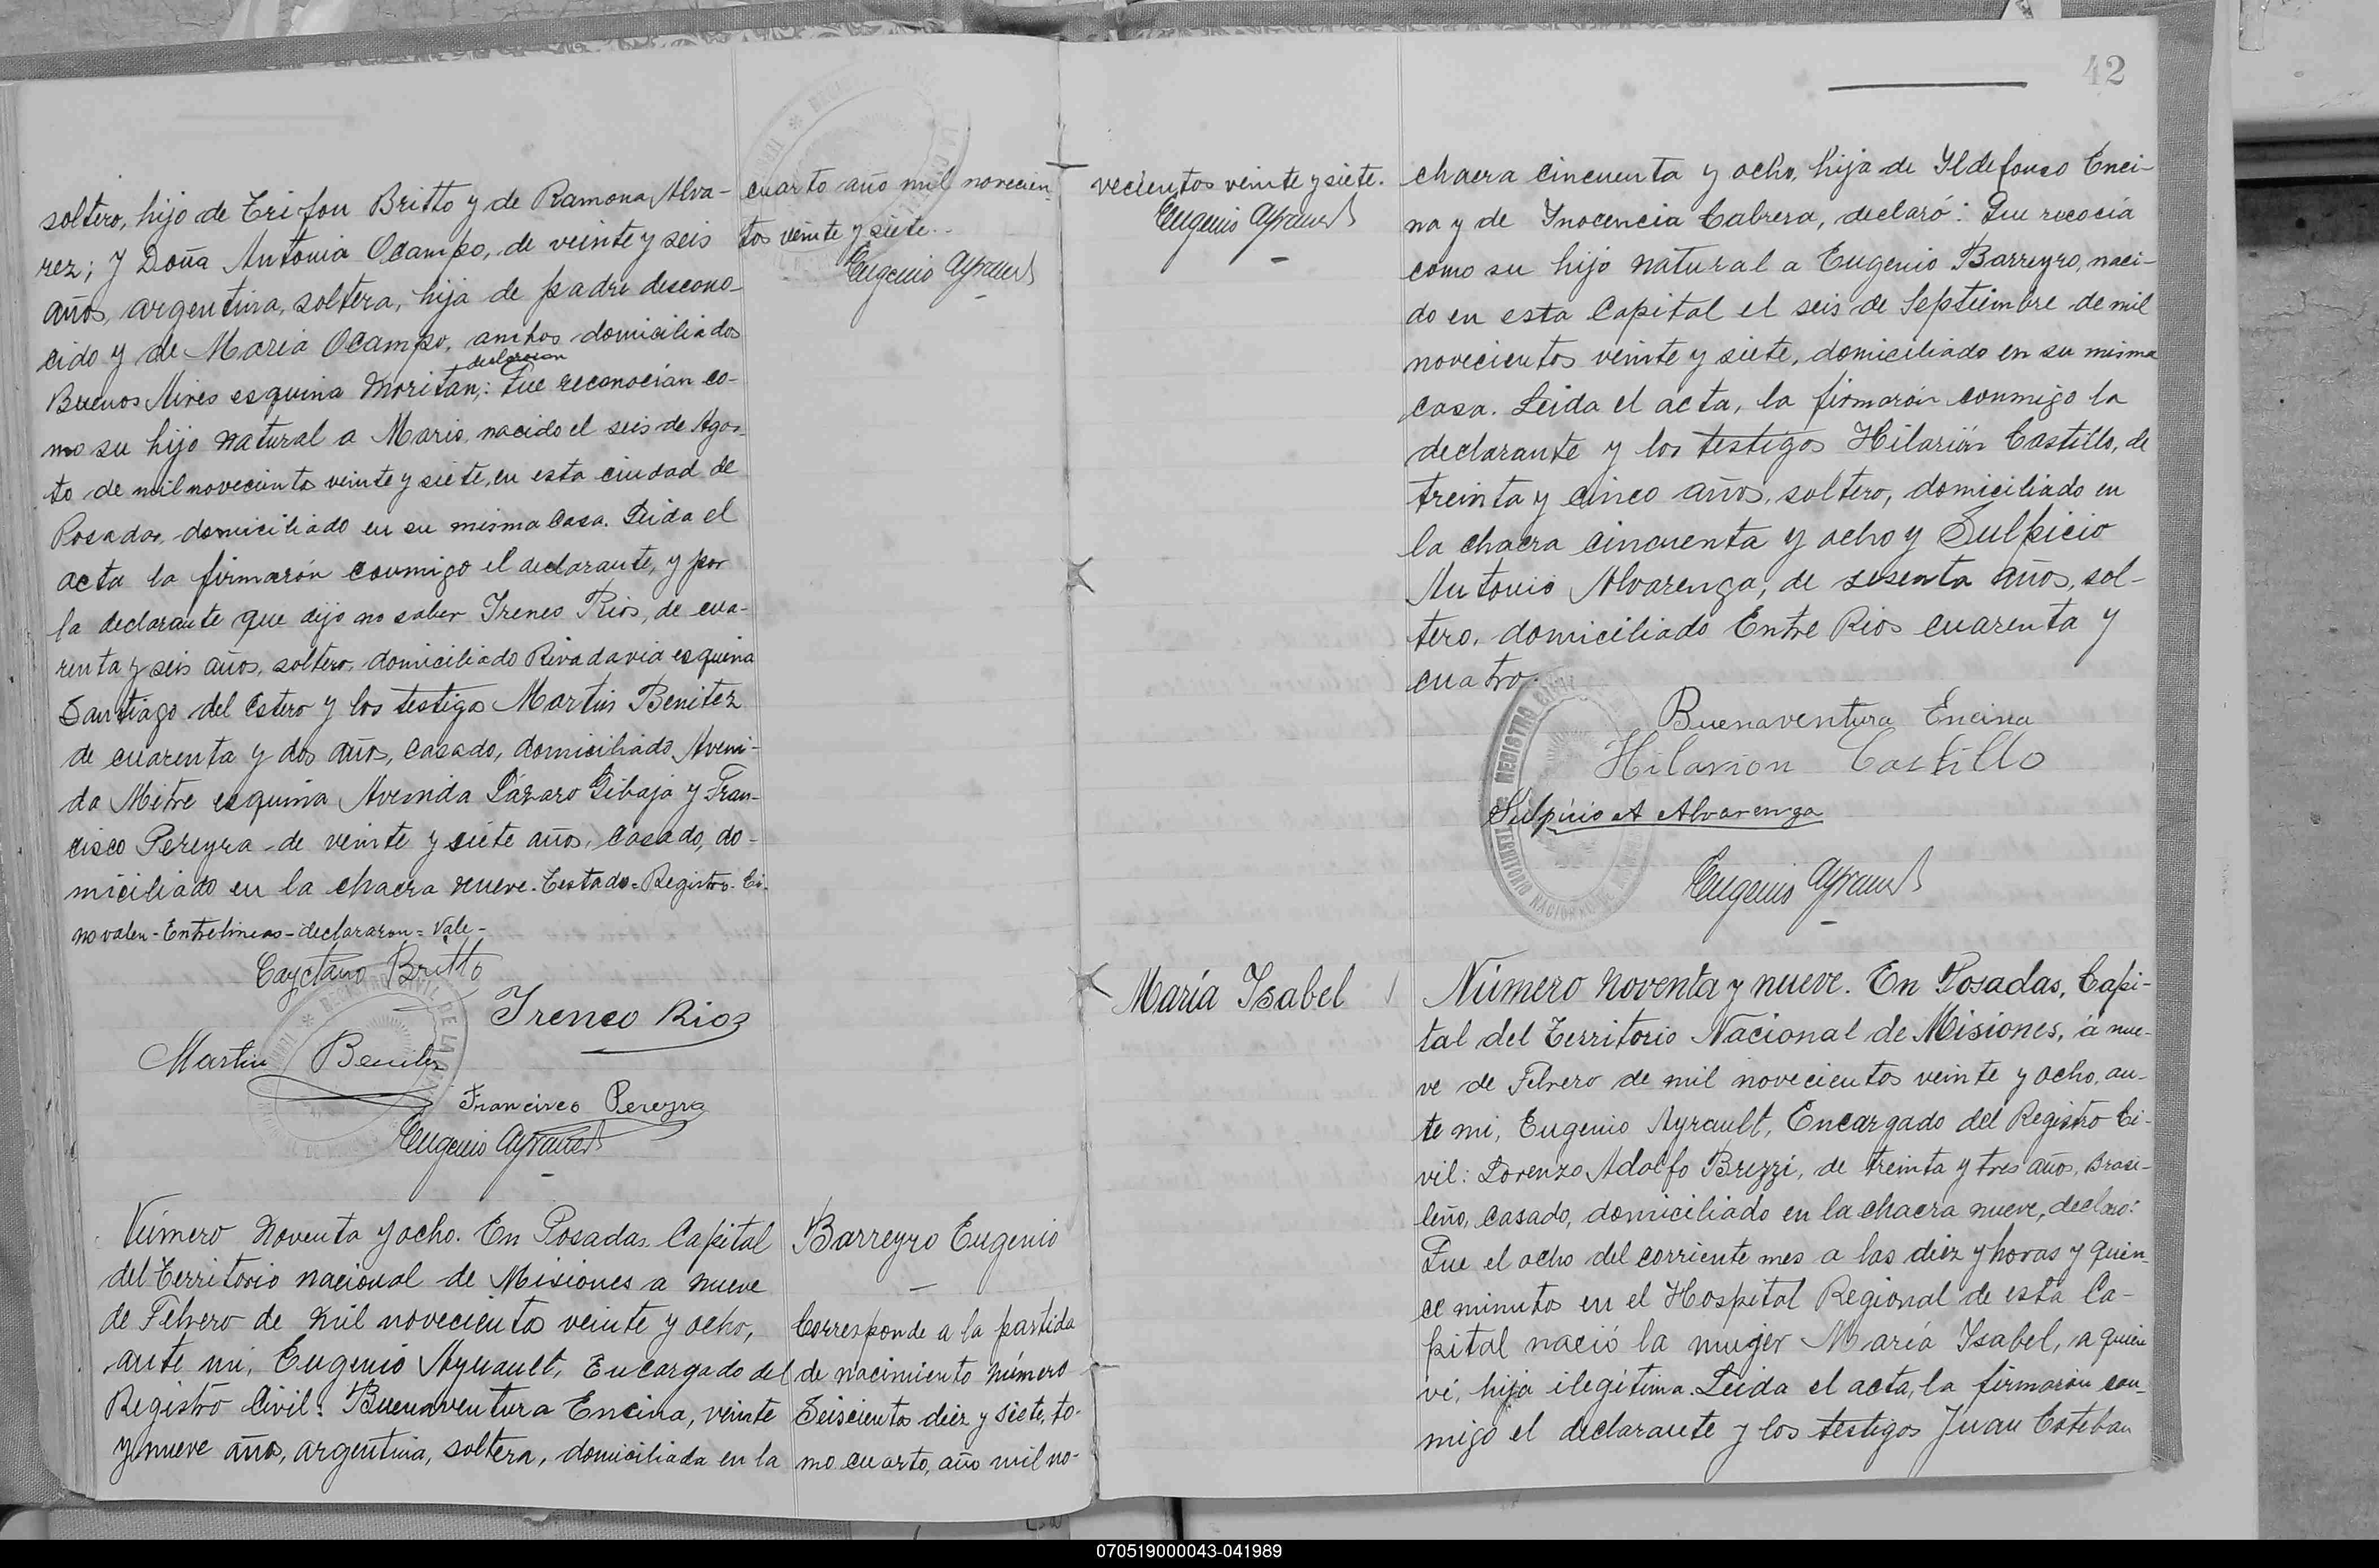 soltero, hijo de Trifon Britto y de Ramona Alva-
rez; y Doña Antonia Ocampo, de veinte y seis
años, argentina, soltera, hija de padre descono-
cido y de Maria Ocampo, ambos domiciliados
declararon
Buenos Aires esquina Moritan,: Que reconocian co-
mo su hijo natural a Mario, nacido el seis de Agos-
to de mil novecientos veinte y siete, en esta ciudad de
Posadas, domiciliado en su misma casa. Leida el
acta la firmarón conmigo el declarante, y por
la declarante que dijo no saber Ireneo Rios, de cua-
renta y seis años, soltero, domiciliado Rivadavia esquina
Santiago del Estero y los testigos Martin Benitez
de cuarenta y dos años, casado, domiciliado Aveni-
da Mitre esquina Avenida Lázaro Gibaja y Fran-
cisco Pereyra de veinte y siete años, casado, do-
miciliado en la chacra nueve. Testado=Registro-Ci-
no valen-Entrelineas-declararon=Vale-
Cayetano Britto
Ireneo Rios
Martin Benitez
Francisco Pereyra
Eugenio Ayrault
cuarto año mil novecien-
tos veinte y siete.
Eugenio Ayrault
Número noventa y ocho. En Posadas, Capital
del Territorio nacional de Misiones a nueve
de Febrero de mil novecientos veinte y ocho,
ante mi, Eugenio Ayrault, Encargado del
Registro Civil: Buenaventura Encina, veinte
y nueve años, argentina, soltera, domiciliada en la
Barreyro Eugenio
Corresponde a la partida
de nacimiento número
Seiscientos diez y siete, to-
mo cuarto, año mil no-
vecientos veinte y siete.
Eugenio Ayrault
42
chacra cincuenta y ocho, hija de Ildefonso Enci-
na y de Inocencia Cabrera, declaró: Que recocia
como su hijo natural a Eugenio Barreyro, naci-
do en esta Capital el seis de Septiembre de mil
novecientos veinte y siete, domiciliado en su misma
casa. Leida el acta, la firmarón conmigo la
declarante y los testigos Hilarión Castillo, de
treinta y cinco años, soltero, domiciliado en
la chacra cincuenta y ocho y Sulpicio
Antonio Alvarenga, de sesenta años, sol-
tero, domiciliado Entre Rios cuarenta y
cuatro.
Buenaventura Encina
Hilarion Castillo
Sulpicio A Alvarenga
Eugenio Ayrault
REGISTRO CIVIL
TERRITORIO NACIONAL DE
María Isabel
Número noventa y nueve. En Posadas, Capi-
tal del Territorio Nacional de Misiones, á nue-
ve de Febrero de mil novecientos veinte y ocho, an-
te mi, Eugenio Ayrault, Encargado del Registro Ci-
vil: Lorenzo Adolfo Brizzi, de treinta y tres años, Brasi-
leño, casado, domiciliado en la chacra nueve, declaró:
Que el ocho del corriente mes a las diez y horas y quin-
ce minutos en el Hospital Regional de esta Ca-
pital nació la mujer María Isabel, a quien
vi, hija ilegítima. Leida el acta, la firmarón con-
migo el declarante y los testigos Juan Esteban
070519000043-041989